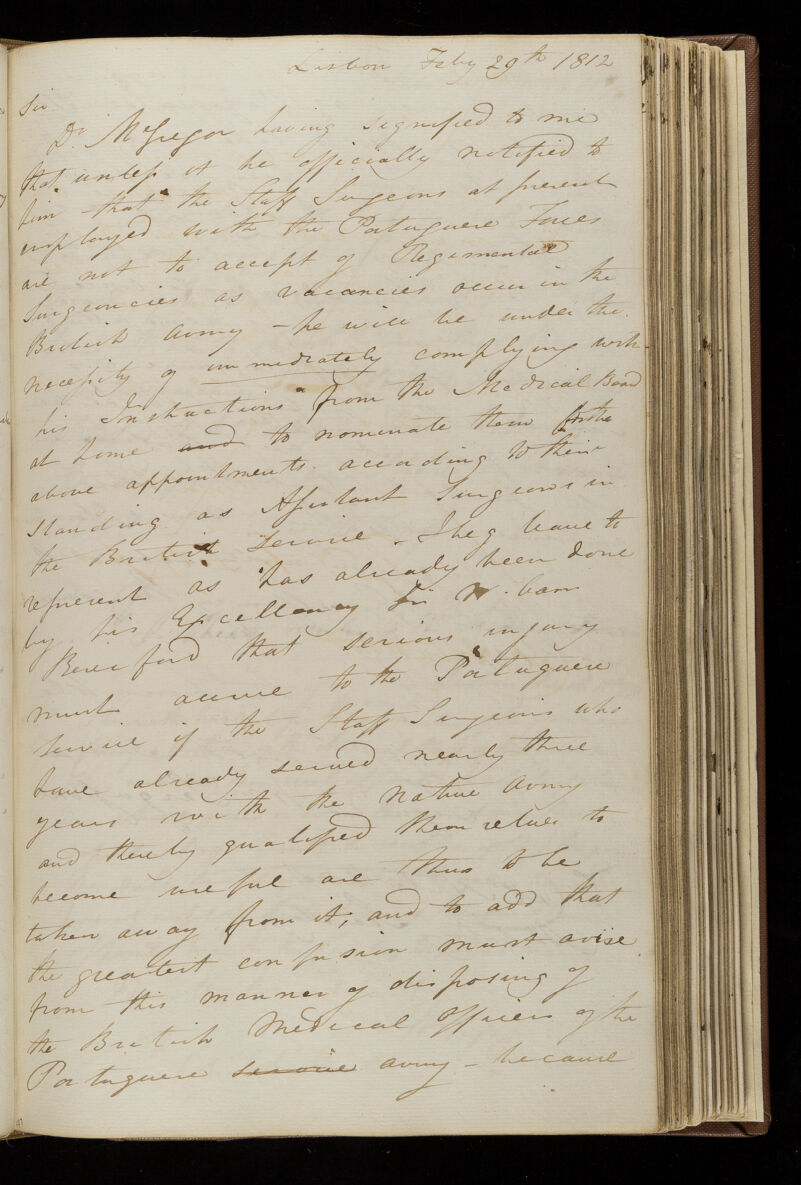 Lisbon Feby 29th 1812
Sir
Dr. McGregor having signified to me
that unless it be officially notified to
him that the Staff Surgeons at present
employed with the Portuguese Forces
are not to accept of Regimental
Surgeoncies as vacancies occur in the
British army – he will be under the
necessity of immediately complying with
his Instructions from the Medical Board
at home and to nominate them for the
above appointments according to their
standing as Assistant Surgeons in
the British Service – I beg leave to
represent as has already been done
by his Excellency Sir W. Carr
Beresford that serious injury
must accrue to the Portuguese
Service if the Staff Surgeons who
have already served nearly three
years with the native army
and thereby qualified themselves to
become useful are thus to be
taken away from it, and to add that
the greatest confusion must arise
from this manner of disposing of
the British Medical Officers of the
Portuguese service army – because